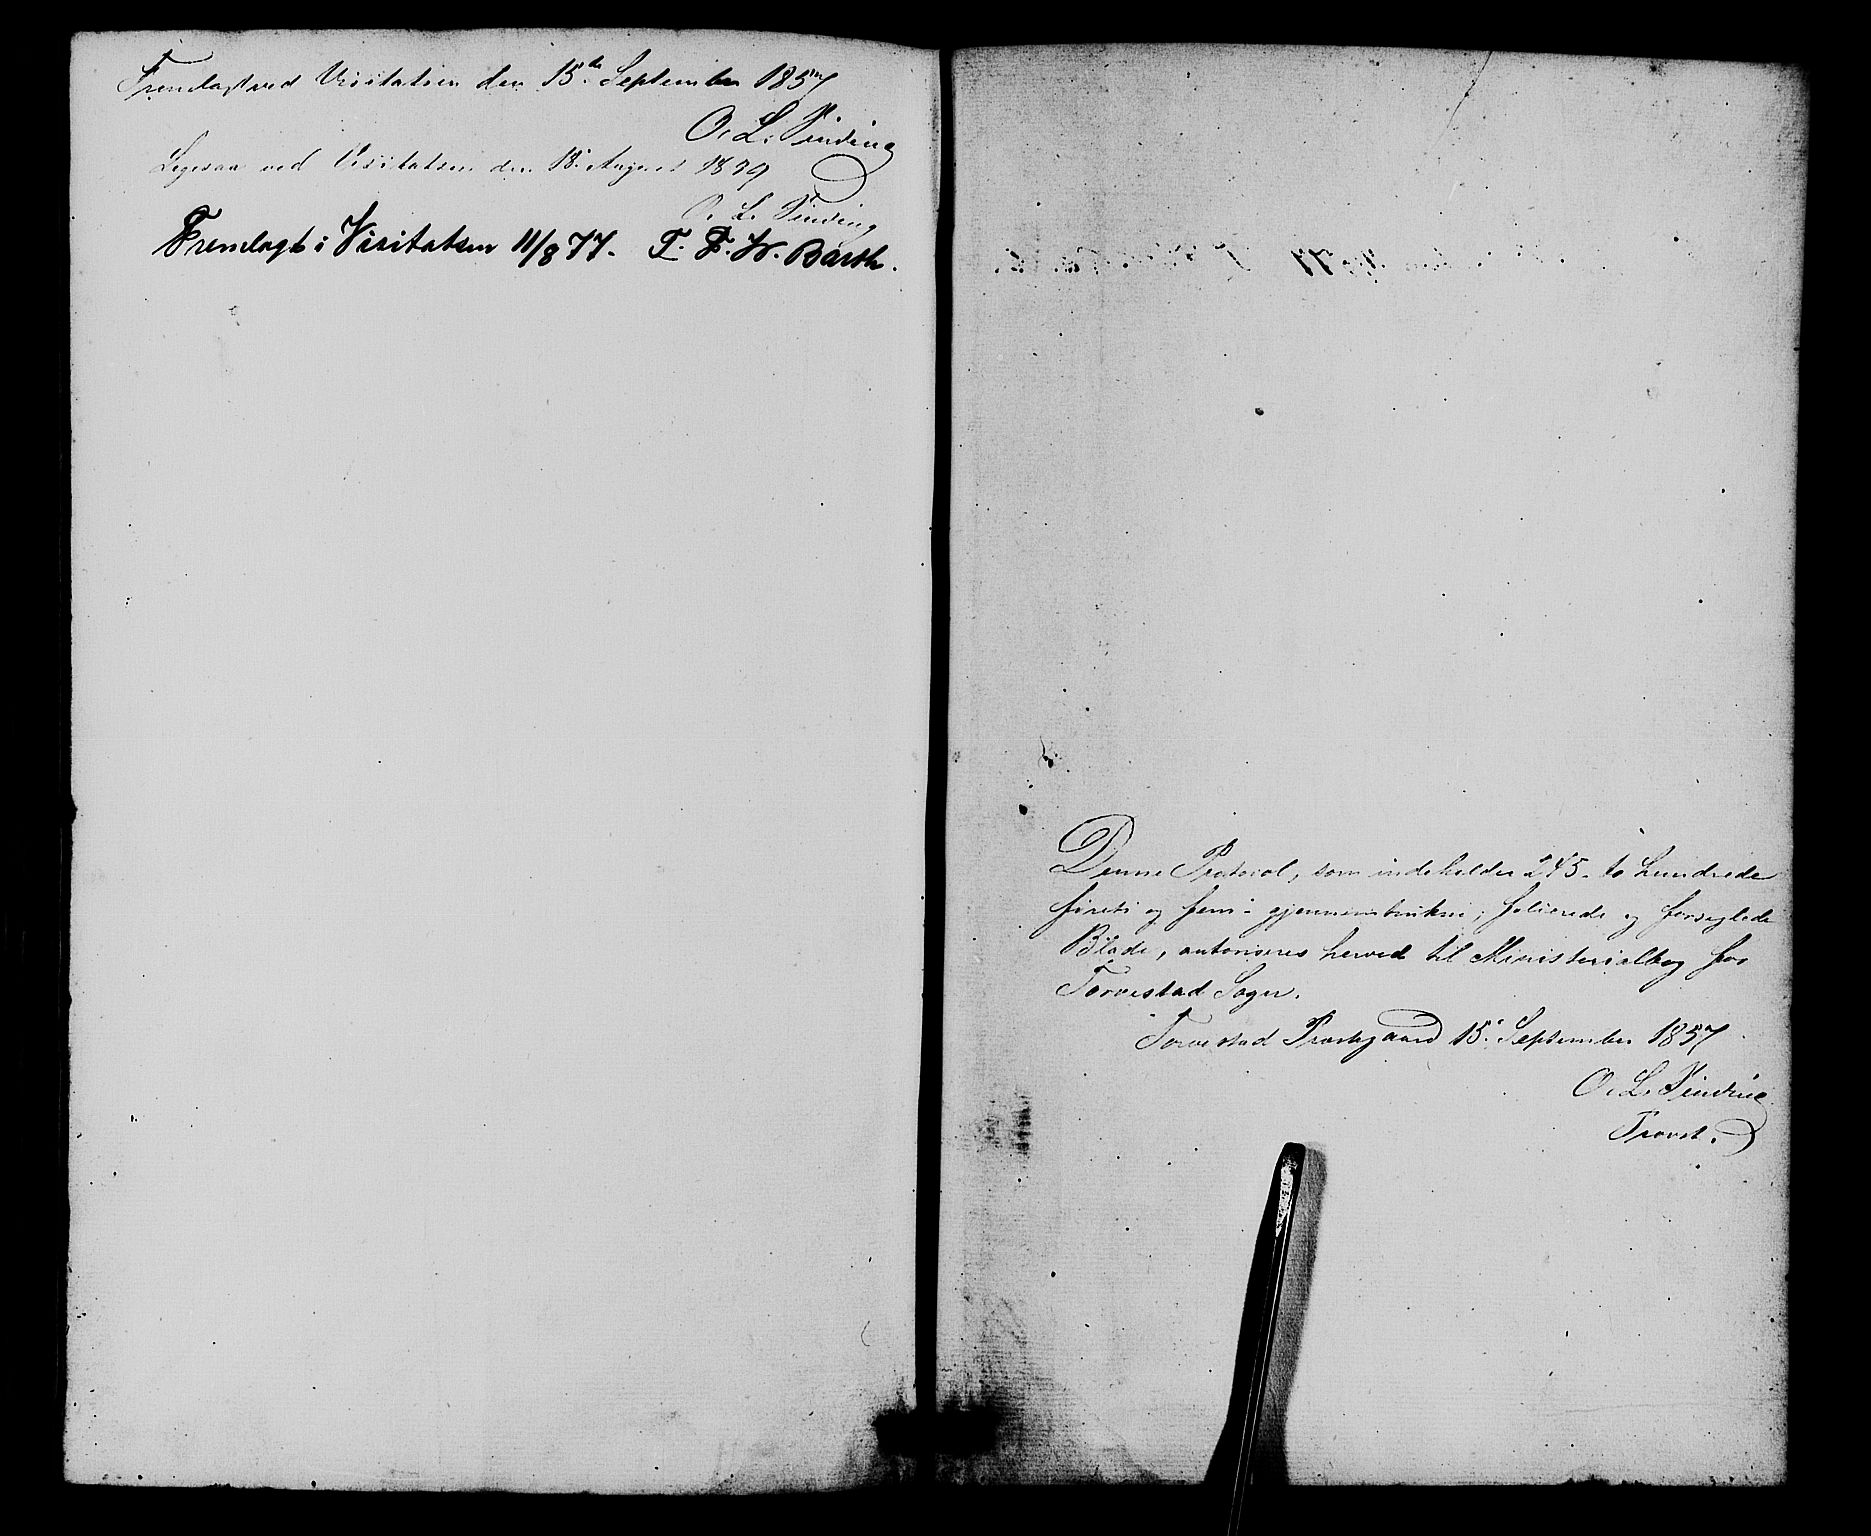 Fremlagt ved Visitatsen den 15de September 1857
O. L. Tinding
Ligesaa ved Visitatsen den 18. August 18
O. L. Tinding
Fremlagt i Visitatsen 11/8 77. T. F. W. Barth.
Denne Protocol, som indeholder 245 - to hundrede
fireti og fem - gjennemtrukne, folierede og forseglede
Blade, autoriseres herved til Ministerialbog for
Torvestad Sogn.
Torvestad Præstegaard 15. September 1857
O. L. Tinding
Provst.